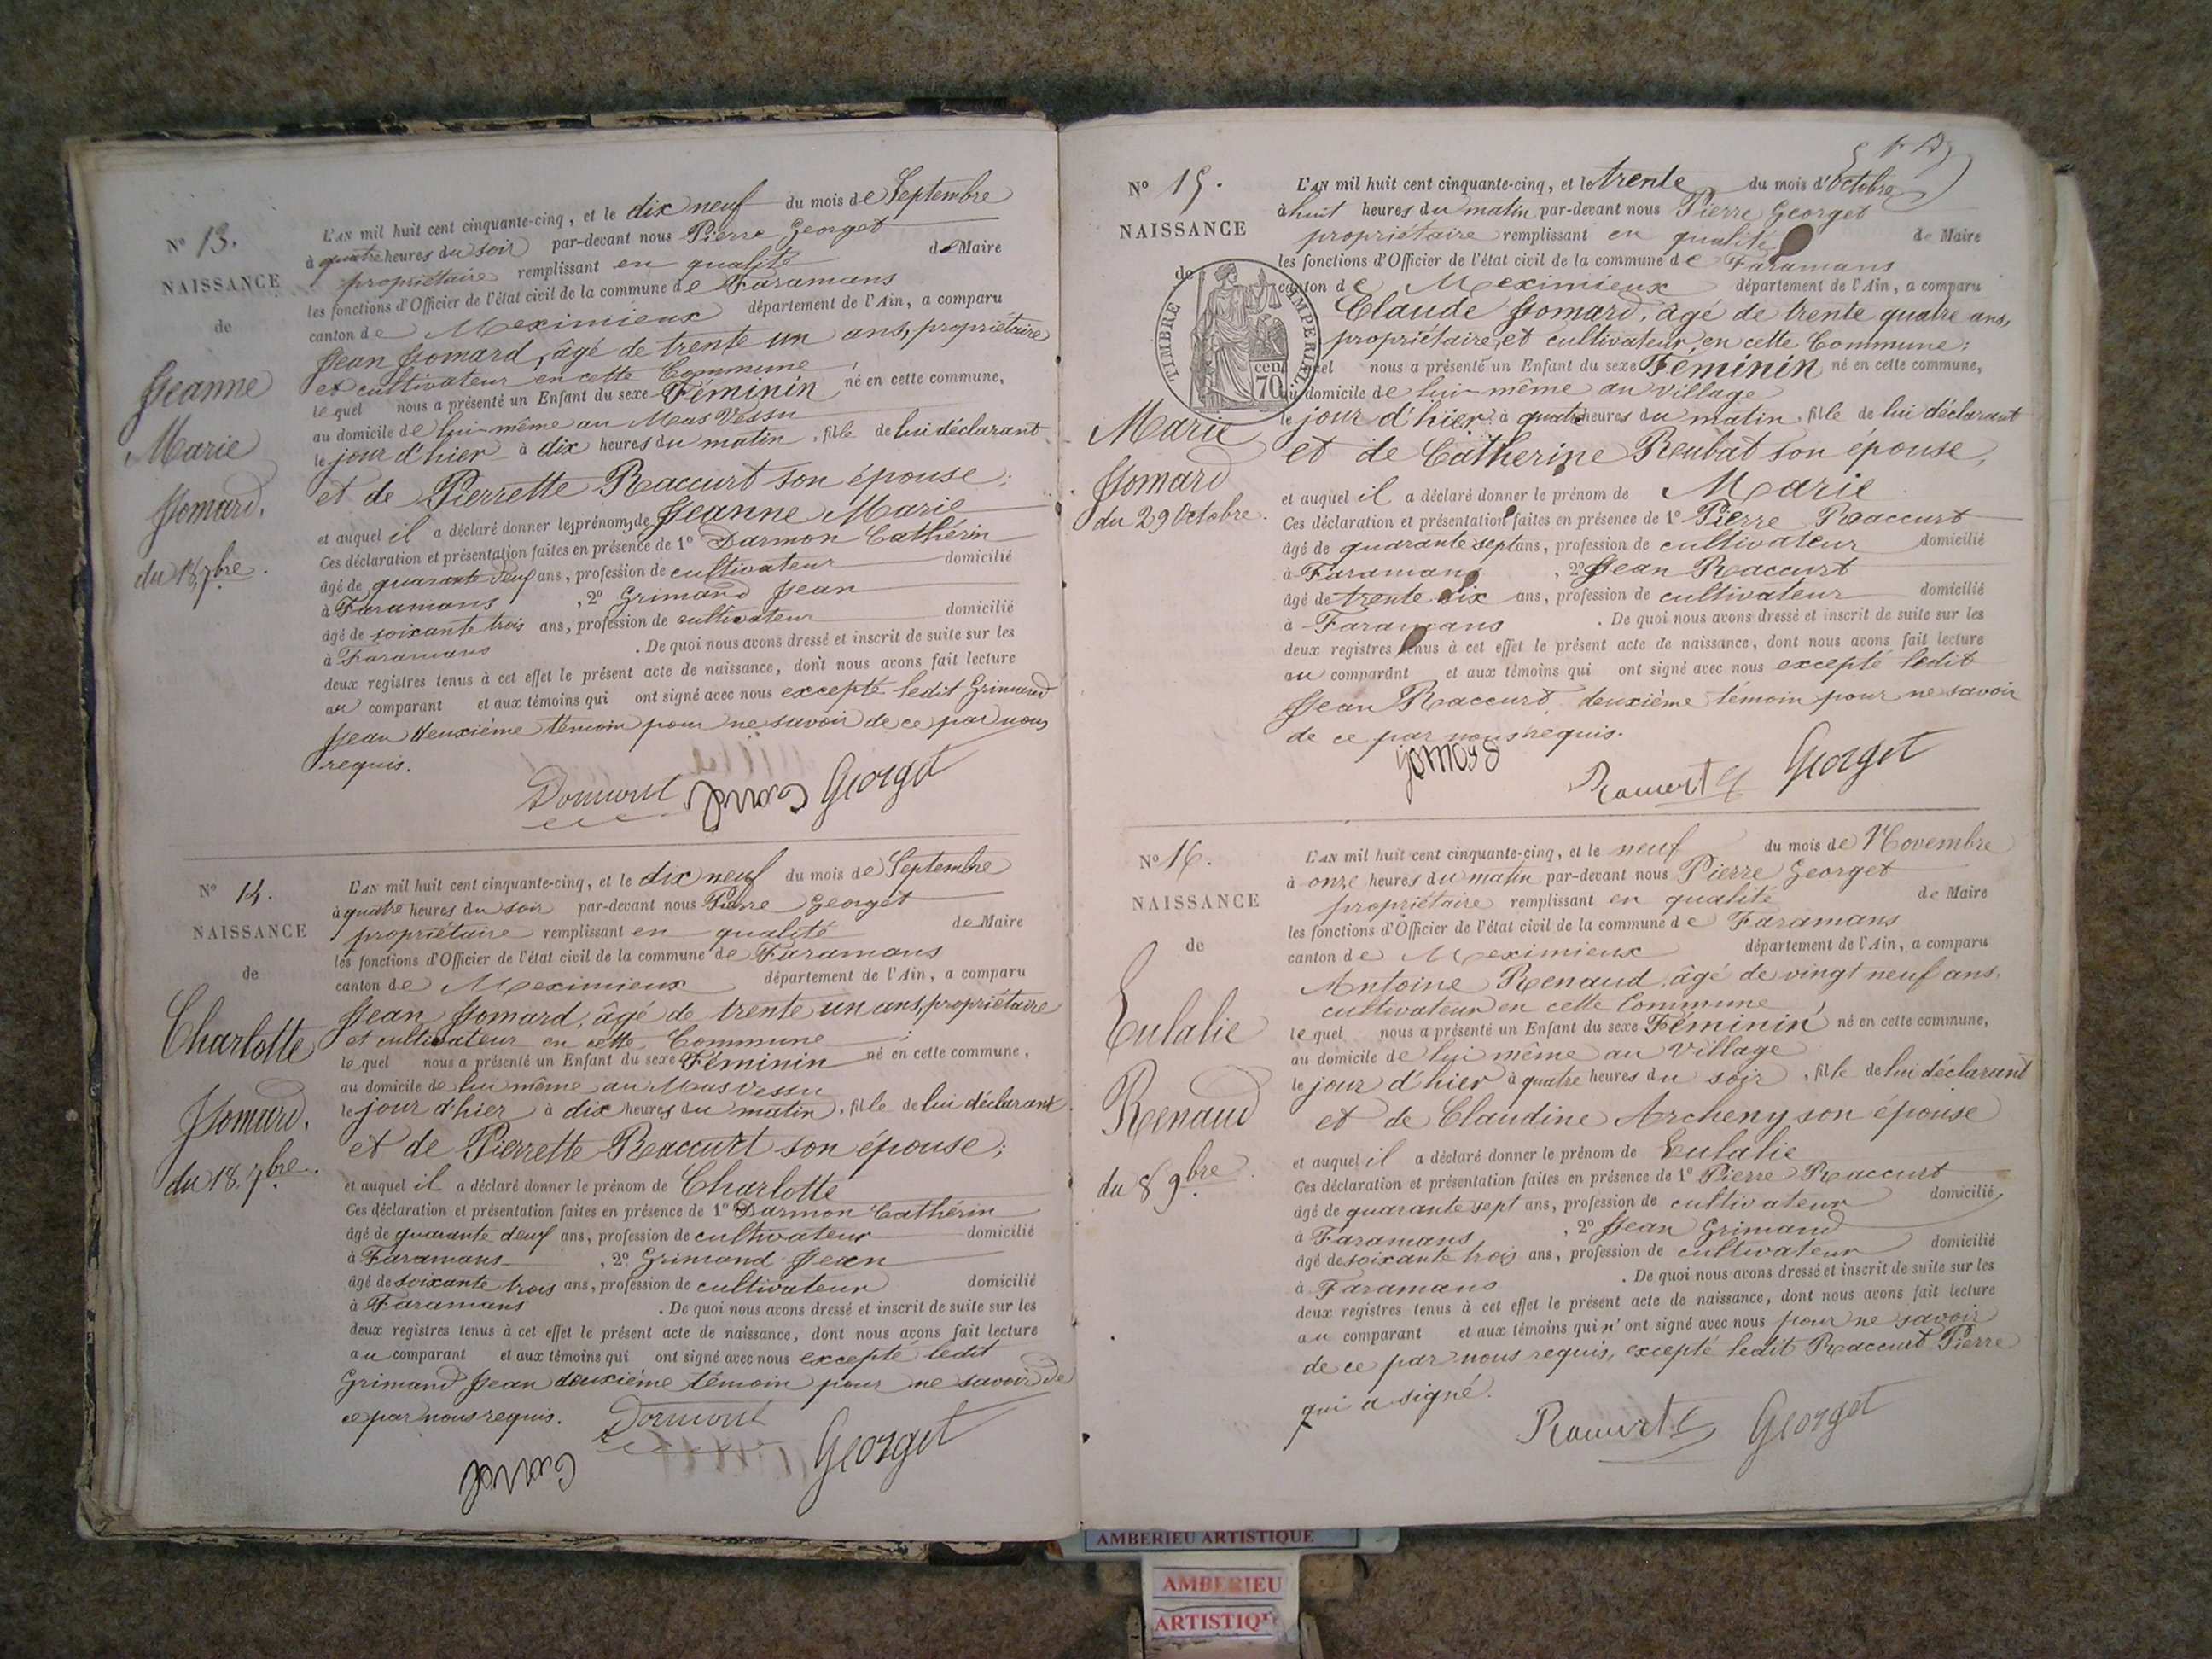 N° 13.
NAISSANCE
de
Jeanne
Marie
Jomard.
du 18, 7bre.
L'AN mil huit cent cinquante-cinq, et le dix neuf du mois de Septembre
à quatre heures du soir par-devant nous Pierre Georget
propriétaire remplissant en qualité de Maire
les fonctions d'Officier de l'état civil de la commune de Faramans
canton de Meximieux département de l'Ain, a comparu
Jean Jomard, âgé de trente un ans, propriétaire
et cultivateur en cette Commune;
lequel nous a présenté un Enfant du sexe Féminin né en cette commune,
au domicile de lui-même au Mas Vessu
le jour d'hier à dix heures du matin, fille de lui déclarant
et de Pierrette Raccurt son épouse;
et auquel il a déclaré donner les prénoms de Jeanne Marie
Ces déclaration et présentation faites en présence de 1° Darmon Cathérin
âgé de quarante deuf ans, profession de cultivateur domicilié
à Faramans, 2° Grimand Jean
âgé de soixante trois ans, profession de cultivateur domicilié
à Faramans. De quoi nous avons dressé et inscrit de suite sur les
deux registres tenus à cet effet le présent acte de naissance, dont nous avons fait lecture
au comparant et aux témoins qui ont signé avec nous excepté ledit Grimand
Jean deuxième témoin pour ne savoir de ce par nous
requis.
Georget
N° 14.
NAISSANCE
de
Charlotte
Jomard.
du 18. 7bre.
L'AN mil huit cent cinquante-cinq, et le dix neuf du mois de Septembre
à quatre heures du soir par-devant nous Pierre Georget
propriétaire remplissant en qualité de Maire
les fonctions d'Officier de l'état civil de la commune de Faramans
canton de Meximieux département de l'Ain, a comparu
Jean Jomard, âgé de trente un ans, propriétaire
et cultivateur en cette Commune;
lequel nous a présenté un Enfant du sexe Féminin né en cette commune,
au domicile de lui même au Mas Vessu
le jour d'hier à dix heures du matin, fille de lui déclarant
et de Pierrette Raccurt son épouse;
et auquel il a déclaré donner le prénom de Charlotte
Ces déclaration et présentation faites en présence de 1° Darmon Cathérin
âgé de quarante deuf ans, profession de cultivateur domicilié
à Faramans, 2° Grimand Jean
âgé de soixante trois ans, profession de cultivateur domicilié
à Faramans. De quoi nous avons dressé et inscrit de suite sur les
deux registres tenus à cet effet le présent acte de naissance, dont nous avons fait lecture
au comparant et aux témoins qui ont signé avec nous excepté ledit
Grimand Jean deuxième témoin pour ne savoir de
ce par nous requis.
Georget
N° 15.
NAISSANCE
de
TIMBRE IMPERIAL
70 cen
Marie
Jomard
du 29 Octobre.
L'AN mil huit cent cinquante-cinq, et le trente du mois d'Octobre
à huit heures du matin par-devant nous Pierre Georget
propriétaire remplissant en qualité de Maire
les fonctions d'Officier de l'état civil de la commune de Faramans
canton de Meximieux département de l'Ain, a comparu
Claude Jomard, âgé de trente quatre ans,
propriétaire et cultivateur en cette Commune;
lequel nous a présenté un Enfant du sexe Féminin né en cette commune,
au domicile de lui-même au Village
le jour d'hier à quatre heures du matin, fille de lui déclarant
et de Catherine Reubat son épouse,
et auquel il a déclaré donner le prénom de Marie
Ces déclaration et présentation faites en présence de 1° Pierre Raccurt
âgé de quarante sept ans, profession de cultivateur domicilié
à Faramans, 2° Jean Raccurt
âgé de trente six ans, profession de cultivateur domicilié
à Faramans. De quoi nous avons dressé et inscrit de suite sur les
deux registres tenus à cet effet le présent acte de naissance, dont nous avons fait lecture
au comparant et aux témoins qui ont signé avec nous excepté ledit
Jean Raccurt, deuxième témoin pour ne savoir
de ce par nous requis.
Jomard
Raccurt Georget
N° 16.
NAISSANCE
de
Eulalie
Renaud
du 8 9bre.
L'AN mil huit cent cinquante-cinq, et le neuf du mois de Novembre
à onze heures du matin par-devant nous Pierre Georget
propriétaire remplissant en qualité de Maire
les fonctions d'Officier de l'état civil de la commune de Faramans
canton de Meximieux département de l'Ain, a comparu
Antoine Renaud, âgé de vingt neuf ans,
cultivateur en cette Commune;
lequel nous a présenté un Enfant du sexe Féminin né en cette commune,
au domicile de lui même au Village
le jour d'hier à quatre heures du soir, fille de lui déclarant
et de Claudine Archeny son épouse
et auquel il a déclaré donner le prénom de Eulalie
Ces déclaration et présentation faites en présence de 1° Pierre Raccurt
âgé de quarante sept ans, profession de cultivateur domicilié
à Faramans, 2° Jean Grimand
âgé de soixante trois ans, profession de cultivateur domicilié
à Faramans. De quoi nous avons dressé et inscrit de suite sur les
deux registres tenus à cet effet le présent acte de naissance, dont nous avons fait lecture
au comparant et aux témoins qui n'ont signé avec nous pour ne savoir
de ce par nous requis, excepté ledit Raccurt Pierre
qui a signé.
Raccurt Georget
AMBERIEU ARTISTIQUE
AMBERIEU
ARTISTIQU